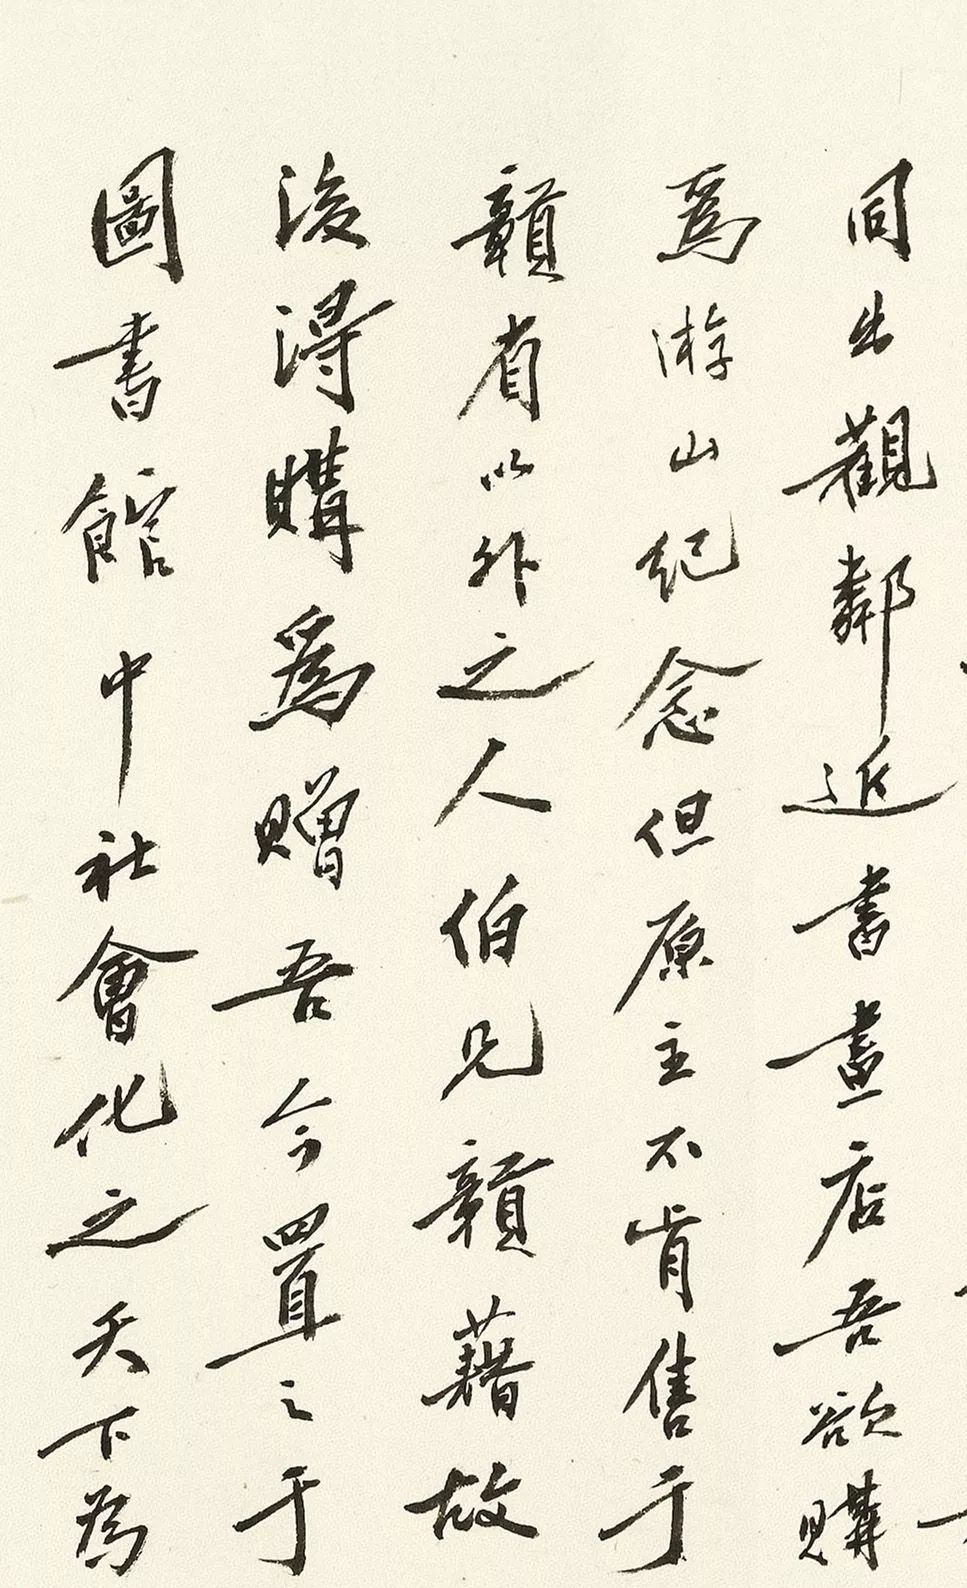 同出觀鄰近書畫店吾欲購
爲游山紀念但原主不肯售于
贛省以外之人伯兄贛藉故
後得購為贈吾今置之于
圖書館中社會化之天下為